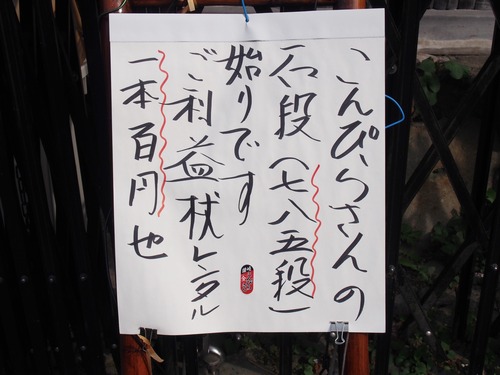 こんぴらさんの
石段(七八五段)
始りです
ご利益杖レンタル
一本百円也